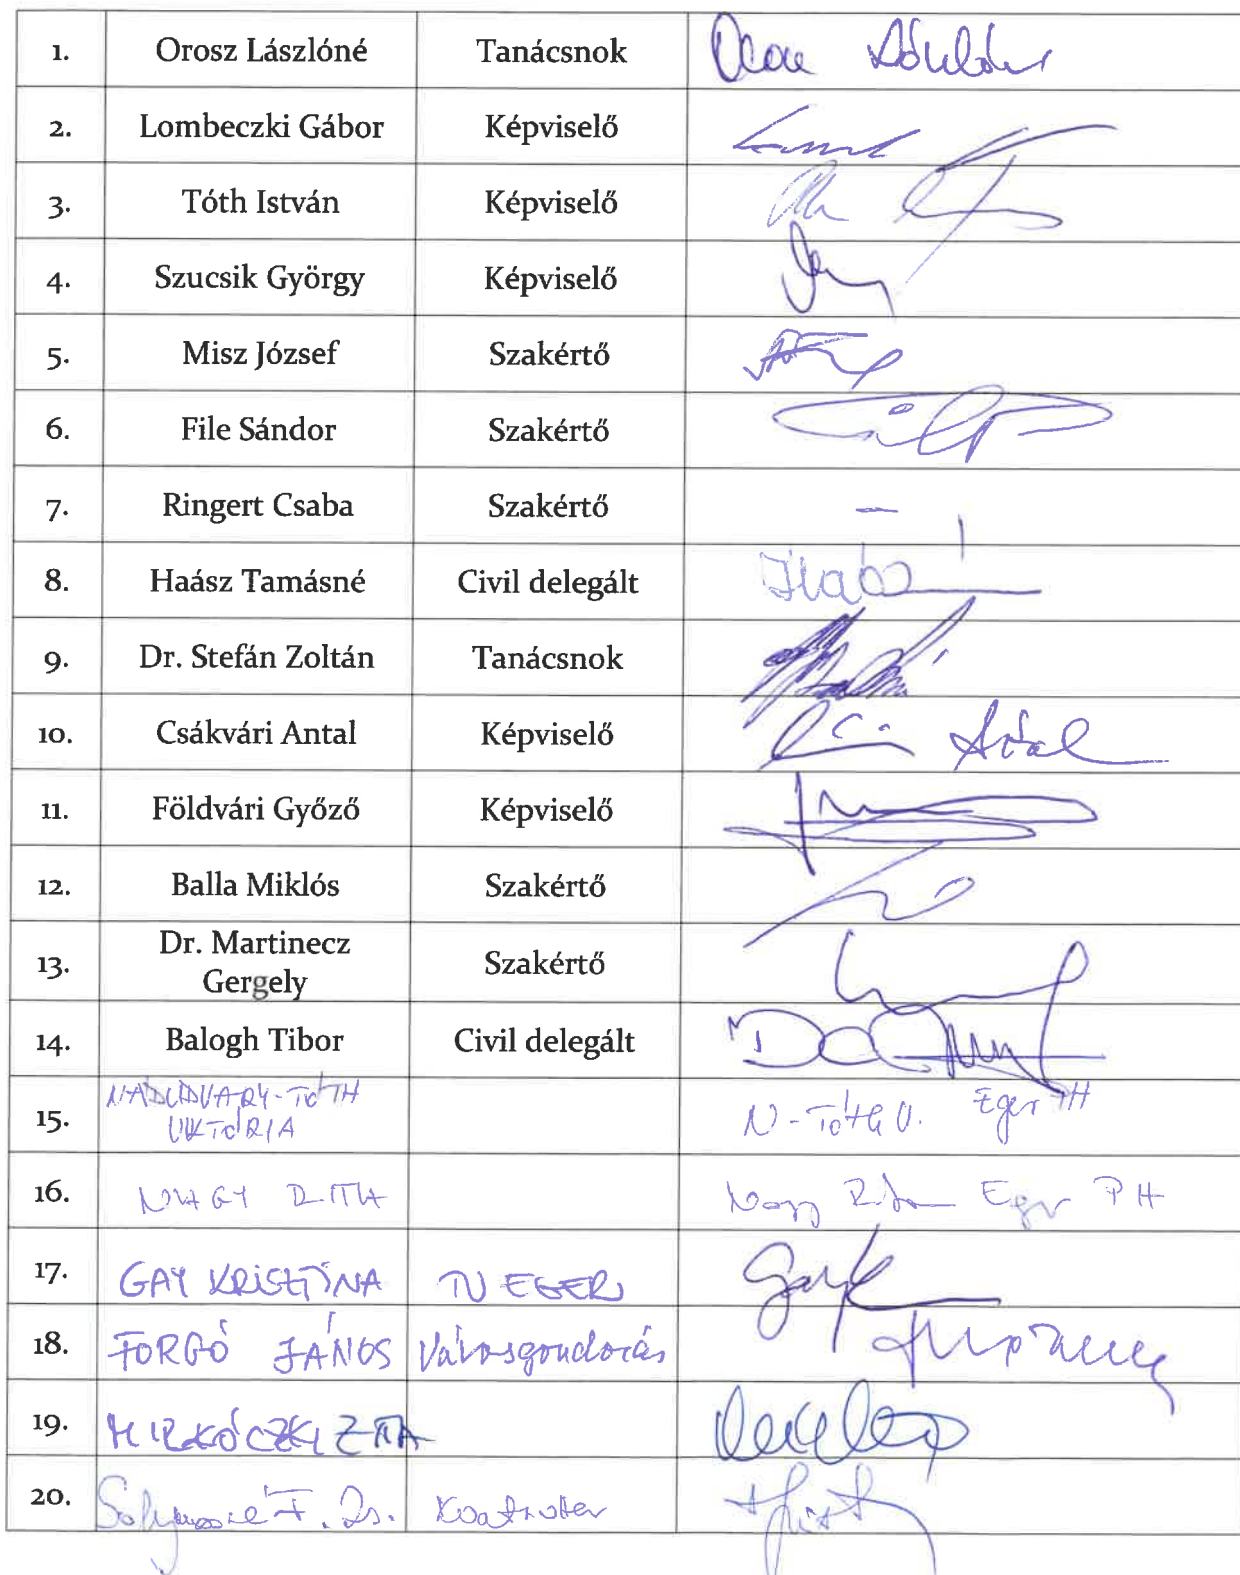 1. Orosz Lászlóné Tanácsnok
2. Lombeczki Gábor Képviselő
3. Tóth István Képviselő
4. Szucsik György Képviselő
5. Misz József Szakértő
6. File Sándor Szakértő
7. Ringert Csaba Szakértő –
8. Haász Tamásné Civil delegált
9. Dr. Stefán Zoltán Tanácsnok
10. Csákvári Antal Képviselő
11. Földvári Győző Képviselő
12. Balla Miklós Szakértő
13. Dr. Martinecz
Gergely Szakértő
14. Balogh Tibor Civil delegált
15. NÁDUDVARY-TÓTH
VIKTÓRIA N-Tóth V. Eger PH
16. NAGY RITA Nagy Rita Eger PH
17. GAY KRISTÍNA TV EGER
18. FORGÓ JÁNOS Városgondozás
19. MIRKÓCZKI ZITA
20.